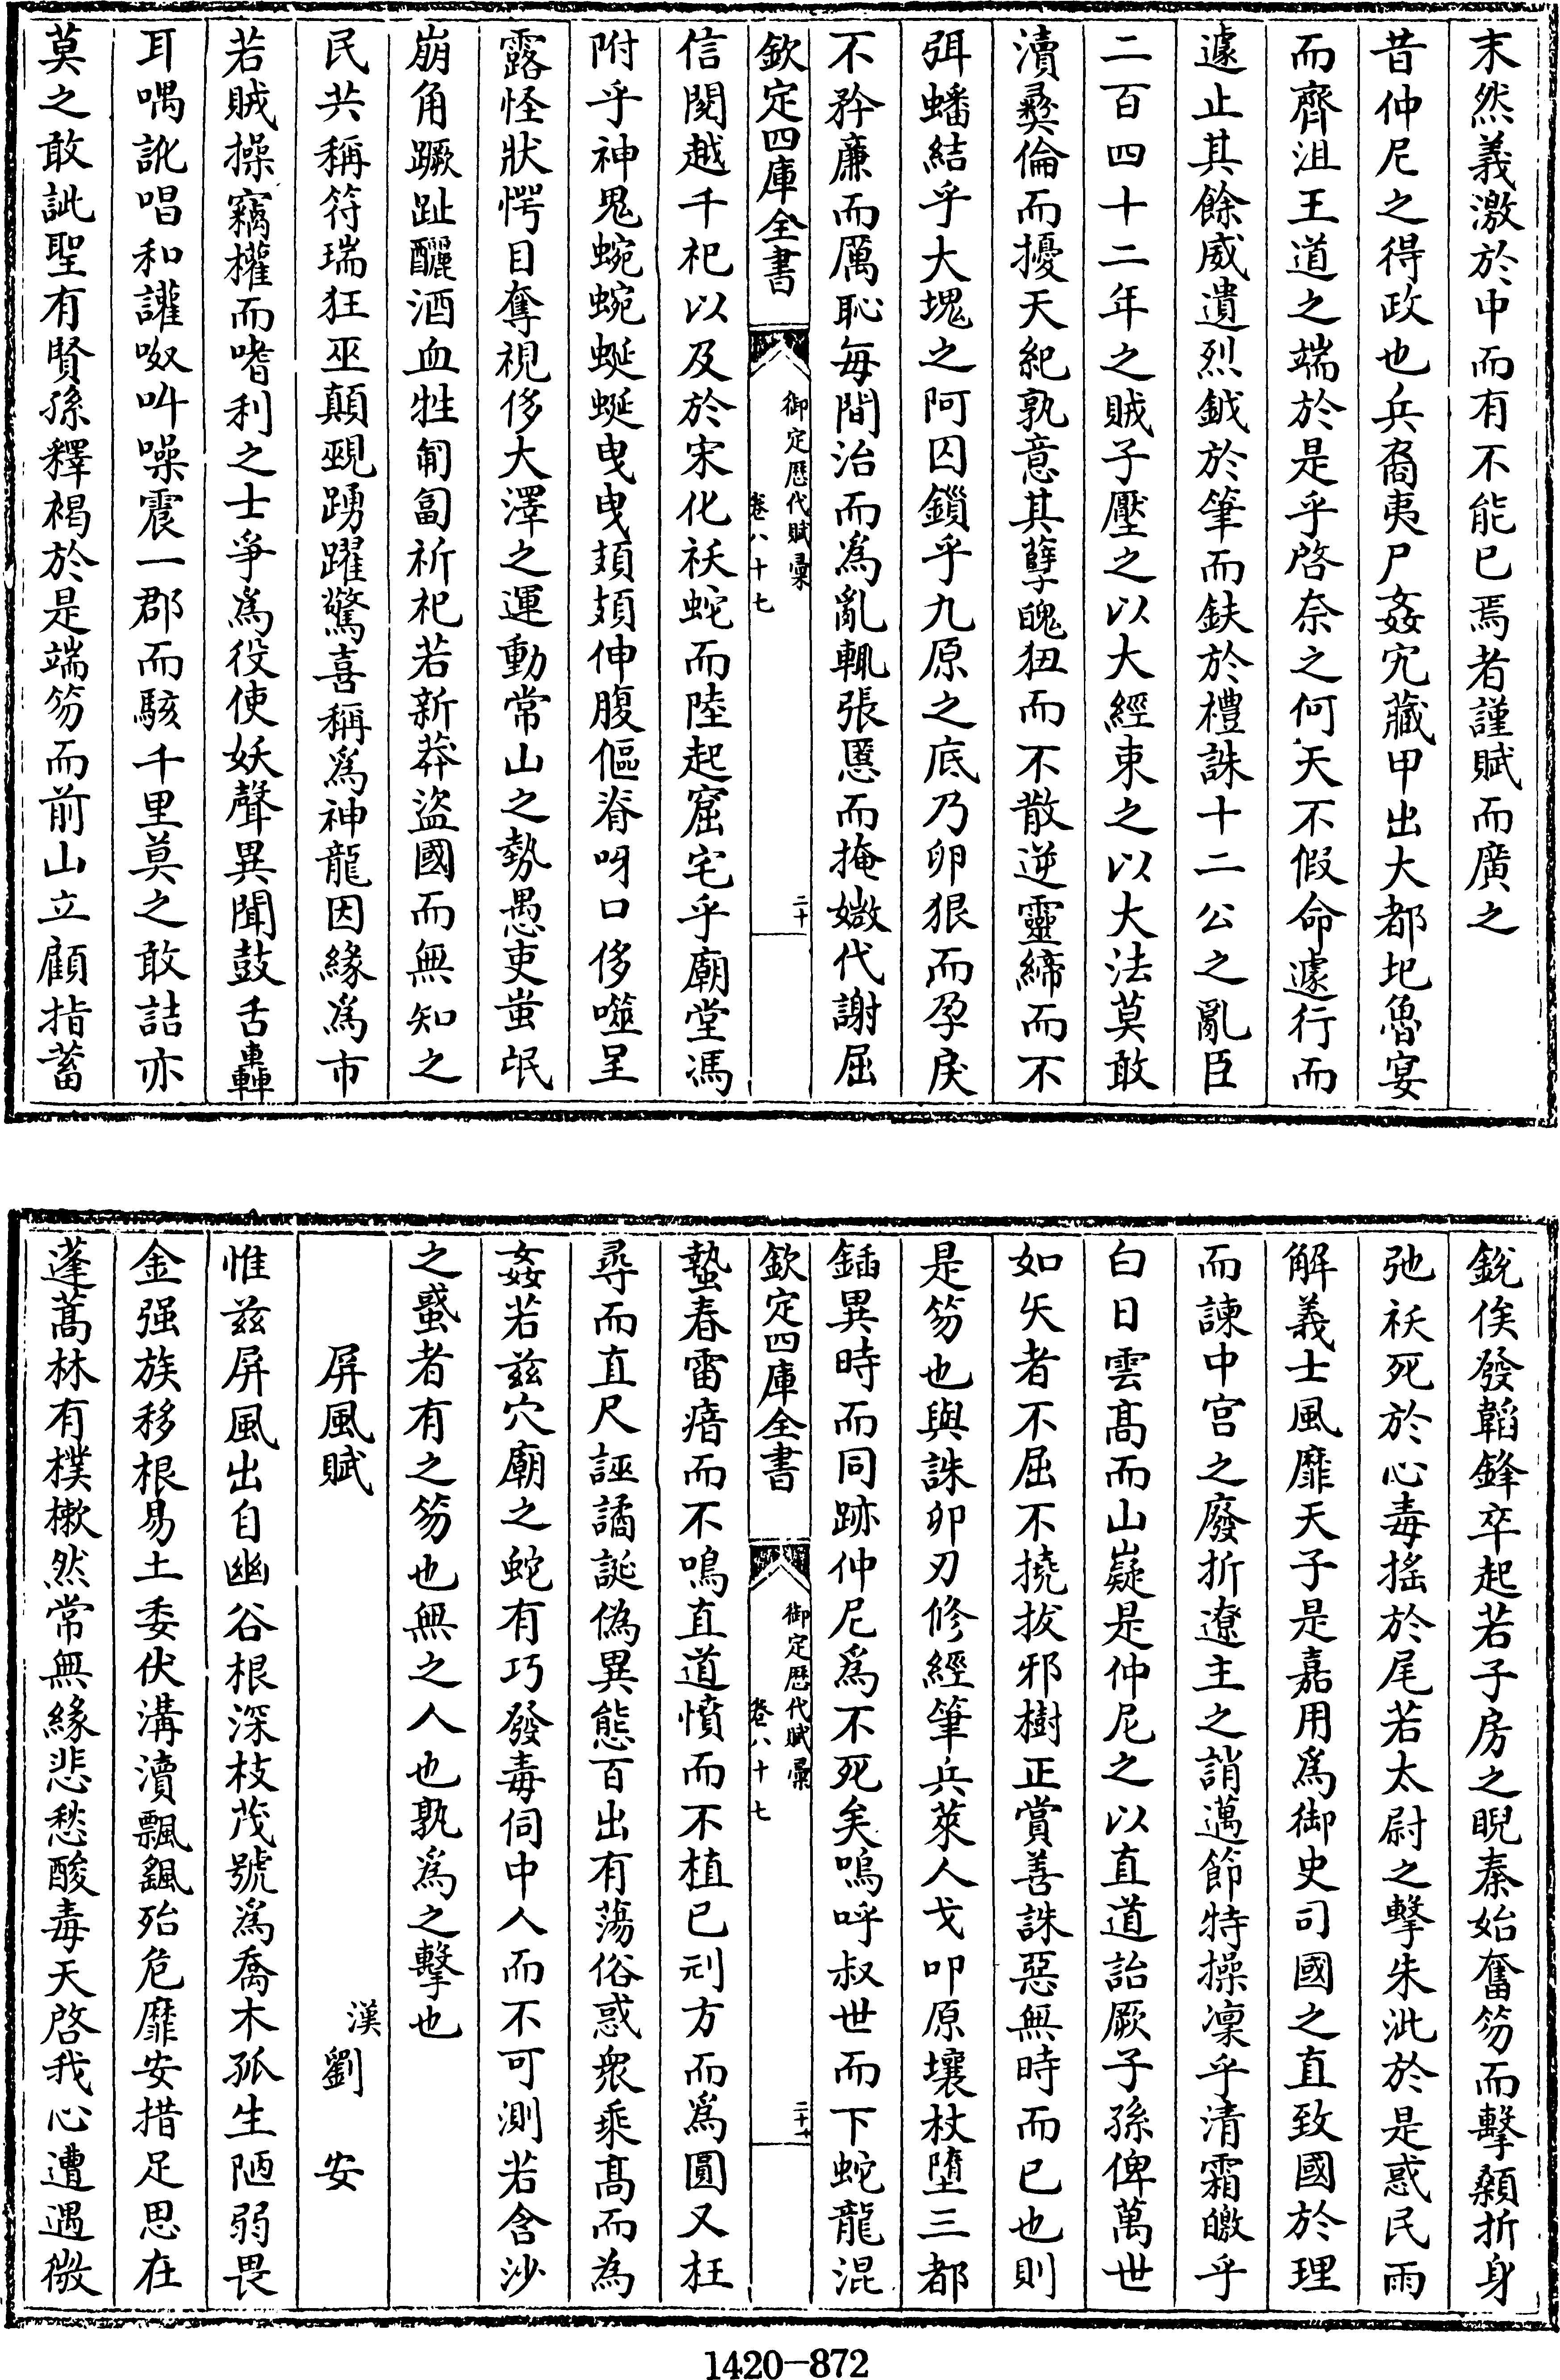 末然義激於中而有不能已焉者謹賦而廣之
昔仲尼之得政也兵裔夷尸姦宄藏甲出大都圮魯宴
而齊沮王道之端於是乎啓奈之何天不假命遽行而
遽止其餘威遺烈鉞於筆而鈇於禮誅十二公之亂臣
二百四十二年之賊子壓之以大經束之以大法莫敢
瀆彛倫而擾天紀孰意其孽醜狃而不散逆靈締而不
弭蟠結乎大塊之阿囚鎻乎九原之底乃卵狠而孕戾
不矜亷而厲恥每間治而為亂輒張慝而掩媺代謝屈
欽定四庫全書
御定歴代賦彚
卷八十七
二十
信閱越千祀以及於宋化祅蛇而陸起窟宅乎廟堂馮
附乎神鬼蜿蜿蜒蜒曳曳頍頍伸腹傴脊呀口侈噬呈
露怪狀愕目奪視侈大澤之運動常山之勢愚吏蚩氓
崩角蹶趾釃酒血牲匍匐祈祀若新莽盜國而無知之
民共稱符瑞狂巫顛覡踴躍驚喜稱為神龍因緣為市
若賊操竊權而嗜利之士爭為役使妖聲異聞鼓舌轟
耳喁訛唱和讙呶叫噪震一郡而駭千里莫之敢詰亦
莫之敢訿聖有賢孫釋褐於是端笏而前山立顧指蓄
銳俟發韜鋒卒起若子房之睨秦始奮笏而擊顙折身
弛祅死於心毒搖於尾若太尉之擊朱泚於是惑民雨
解義士風靡天子是嘉用為御史司國之直致國於理
而諫中宮之廢折遼主之誚邁節特操凜乎清霜皦乎
白日雲髙而山嶷是仲尼之以直道詒厥子孫俾萬世
如矢者不屈不撓拔邪樹正賞善誅惡無時而已也則
是笏也與誅卯刃修經筆兵萊人戈叩原壤杖墮三都
鍤異時而同跡仲尼為不死矣嗚呼叔世而下蛇龍混
欽定四庫全書
御定歴代賦彚
卷八十七
二十一
蟄春雷瘖而不鳴直道憤而不植已刓方而為圓又枉
尋而直尺誣譎誕偽異態百出有蕩俗惑衆乘髙而為
姦若兹穴廟之蛇有巧發毒伺中人而不可測若含沙
之蜮者有之笏也無之人也孰為之擊也
屏風賦
漢劉安
惟兹屏風出自幽谷根深枝茂號為喬木孤生陋弱畏
金强族移根易土委伏溝瀆飄飖殆危靡安措足思在
蓬蒿林有樸樕然常無緣悲愁酸毒天啓我心遭遇微
1420-872